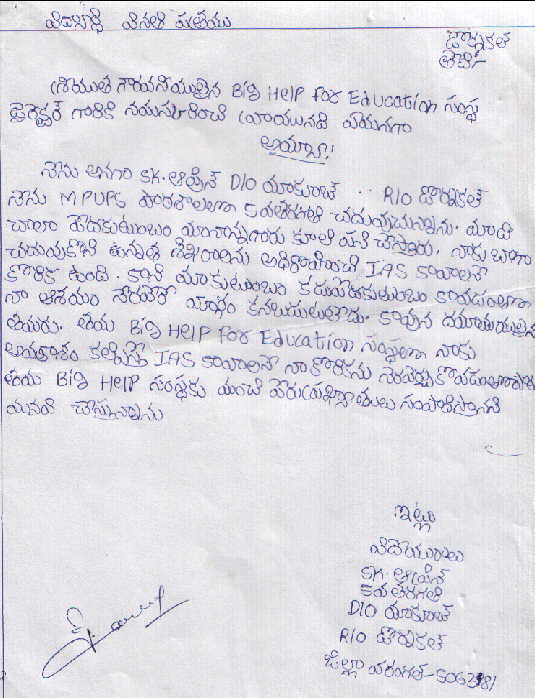 విన్నపం వినతి పత్రము
డోర్నకల్
తేది:-
శ్రీయుత గౌరవనీయులైన Big HELP For Education సంస్థ
డైరెక్టర్ గారికి నమస్కరించి వ్రాయునది ఏమనగా
అయ్యా!
నేను అనగా SK. ఆఫ్రీన్ D/O యాకూబ్ R/O డోర్నకల్
నేను MPUPS పాఠశాలలో 5వతరగతి చదువుచున్నాను. మాది
చాలా పేదకుటుంబం మానాన్నగారు కూలి పని చేస్తారు. నాకు బాగా
చదువుకొని ఉన్నత శిఖరాలను అధిరోహించి IAS కావాలనే
కోరిక ఉంది. కాని మాకుటుంబం కడుపేదకుటుంబం కావడంవలన
నా ఆశయం నెరవేరే మార్గం కనబడుటలేదు. కావున దయామయులైన
తమరు. తమ Big HELP For Education సంస్థద్వారా నాకు
అవకాశం కల్పిస్తే IAS కావాలనే నా కోరికను నెరవేర్చుకోవడంతోపాటు
తమ Big HELP సంస్థకు మంచి పేరుప్రఖ్యాతులు సంపాదిస్తానని
మనవి చేస్తున్నాను
ఇట్లు
విధేయురాలు
SK. ఆఫ్రీన్
5వ తరగతి
D/O యాకూబ్
R/O డోర్నకల్
జిల్లా వరంగల్-506381